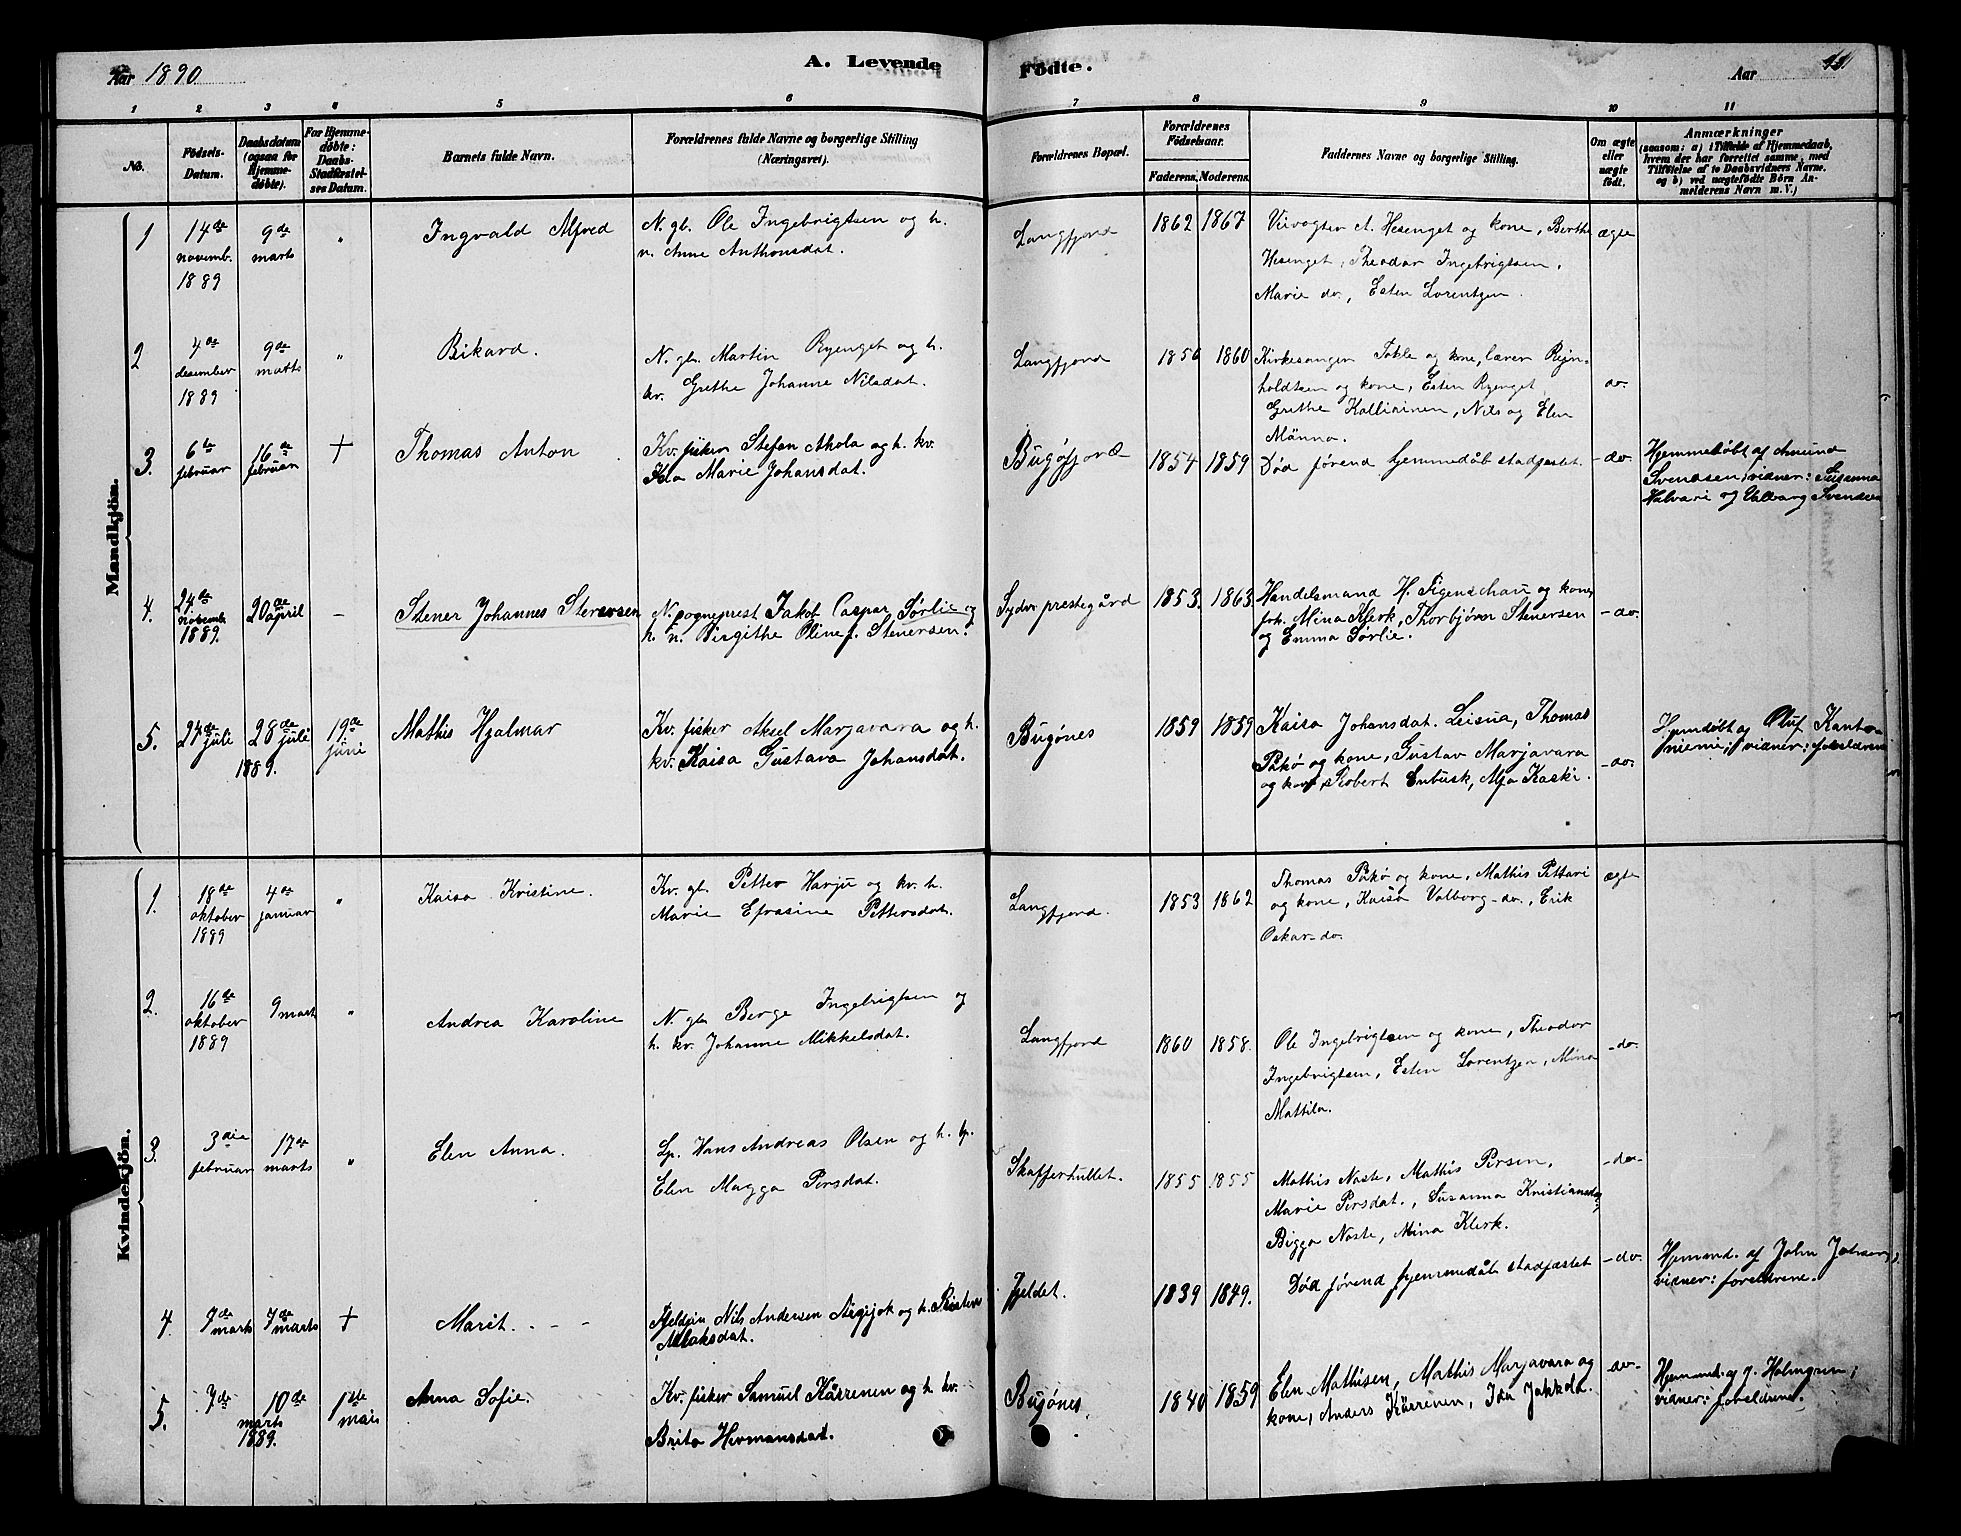 Aar 1890
A. Levende
Fødte.
Aar
1
2
3
4
5
6
7
8
9
10
11
No.
Fødsels-
Datum.
Daabsdatum
(ogsaa for
Hjemme-
døbte).
For Hjemme-
døbte:
Daabs-
Stadfæstel-
ses Datum.
Barnets fulde Navn.
Forældrenes fulde Navne og borgerlige Stilling
(Næringsvei).
Forældrenes Bopæl.
Forældrenes
Fødselsaar.
Faderens.
Moderens.
Faddernes Navne og borgerlige Stilling.
Om ægte
eller
uægte
født.
Anmærkninger
(saasom: a) i Tilfælde af Hjemmedaab,
hvem der har forrettet samme, med
Tilføielse af to Daabsvidners Navne,
og b) ved uægtefødte Børn An-
melderens Navn m. V.)
Mandkjön.
1
14de
novemb.
1889
9de
marts
"
Ingvald Alfred
N. gb. Ole Ingebrigtsen og h.
n. Anne Anthonsdat.
Langfjord
1862
1867
Veivogter A. Hesenget og kone, Berthe
Hesenget, Theodor Ingebrigtsen,
Marie do., Esten Lorentzen.
ægte
2
4de
desember
1889
9de
marts
"
Rikard.
N. gb. Martin Ryenget og h.
kv. Grethe Johanne Nilsdat.
Langfjord
1856
1860
Kirkesanger Tokle og kone, lærer Rejn-
holdtsen og kone, Esten Ryenget
Grethe Kalliainen, Nils og Elen
Männo.
do.
3.
6te
februar
16de
februar
+
Thomas Anton
Kv. fisker Stefan Akola og h. kv.
Ida Marie Johansdat.
Bugøfjord
1854
1859
Død førend hjemmedåb stadfæstet.
-do.
Hjemmedøbt af Amund
Svendsen; vidner: Susanna
Halvari og Valborg Svendsen
4.
24de
novemb.
1889.
20de
april
-
Stener Johannes Stenersen
N. sogneprest Jakob Caspar Sørlie og
h. n. Birgithe Oline f. Stenersen.
Sydv. prestegård
1853.
1863.
Handelsmand H. Figenschau og kone
frk. Mina Klerk, Thorbjørn Stenersen
og Emma Sørlie.
-do.
5.
27de
juli
28de
juli
1889.
19de
juni
Mathis Hjalmar
Kv. fisker Aksel Marjavara og h.
kv. Kaisa Gustava Johansdat.
Bugønes
1859
1859
Kaisa Johansdat. Leisua, Thomas
Påkø og kone, Gustav Marjavara
og kone, Robert Enbusk, Alfa Kaski.
-do.
Hjemdøbt af Oluf Kanto-
niemi; vidner: forældrene
Kvindekjön.
1.
18de
oktober
1889
4de
januar
"
Kaisa Kristine.
Kv. gb. Petter Harju og kv. h.
Marie Efrosine Pettersdat.
Langfjord.
1853
1862
Thomas Påkø og kone, Mathis Pittari
og kone, Kaisa Valborg-do., Erik
Oskar-do.
ægte
2.
16de
oktober
1889
9 marts
"
Andrea Karoline
N. gb. Berge Ingebrigtsen og
h. kv. Johanne Mikkelsdat.
Langfjord
1860
1858.
Ole Ingebrigtsen og kone, Theodor
Ingebrigtsen, Esten Lorentzen, Mina
Mattila.
-do.
3.
3die
februar
17de
marts
"
Elen Anna.
Lp. Hans Andreas Olsen og h. lp.
Elen Magga Persdat.
Skafferhullet.
1855
1855
Mathis Noste, Mathis Persen,
Marie Persdat., Susanna Kristiansdat,
Bigga Noste, Mina Klerk.
-do-
4.
7de
marts
7de
marts
+
Marit.
Fjeldfin Nils Andersen Airgijok og h. Kristine
Aslaksdat.
Fjeldet.
1839
1849.
Død førend hjemmedåb stadfæstet
-do.
Hjemmd. af John Johnsen;
vidner: forældrene.
5.
7de
10de
marts
1889.
1ste
mais
Anna Sofie.
Kv. fisker Samuel Kärrenen og h. kv.
Brita Hermansdat.
Bugønes
1840
1859
Elen Mathisen, Mathis Marjavara og
kone, Anders Kärrenen, Ida Jakkola.
-do-
Hjemmd. af J. Holmgren;
vidner: forældrene.